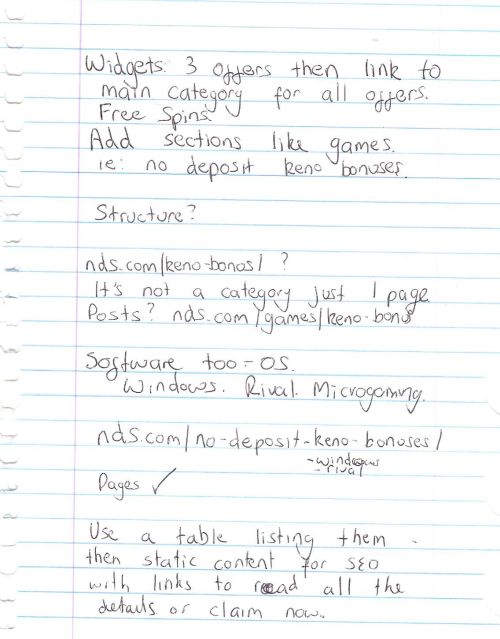 Widgets: 3 offers then link to
main category for all offers.
Free Spins?
Add sections like games.
ie: no deposit keno bonuses.
Structure?
nds.com/keno-bonos/ ?
It's not a category just 1 page
Posts? nds.com/games/keno-bonus
Software too - OS.
Windows. Rival. Microgaming.
nds.com/no-deposit-keno-bonuses/
-windows
-rival
Pages ✓
Use a table listing them -
then static content for SEO
with links to read all the
details or claim now.